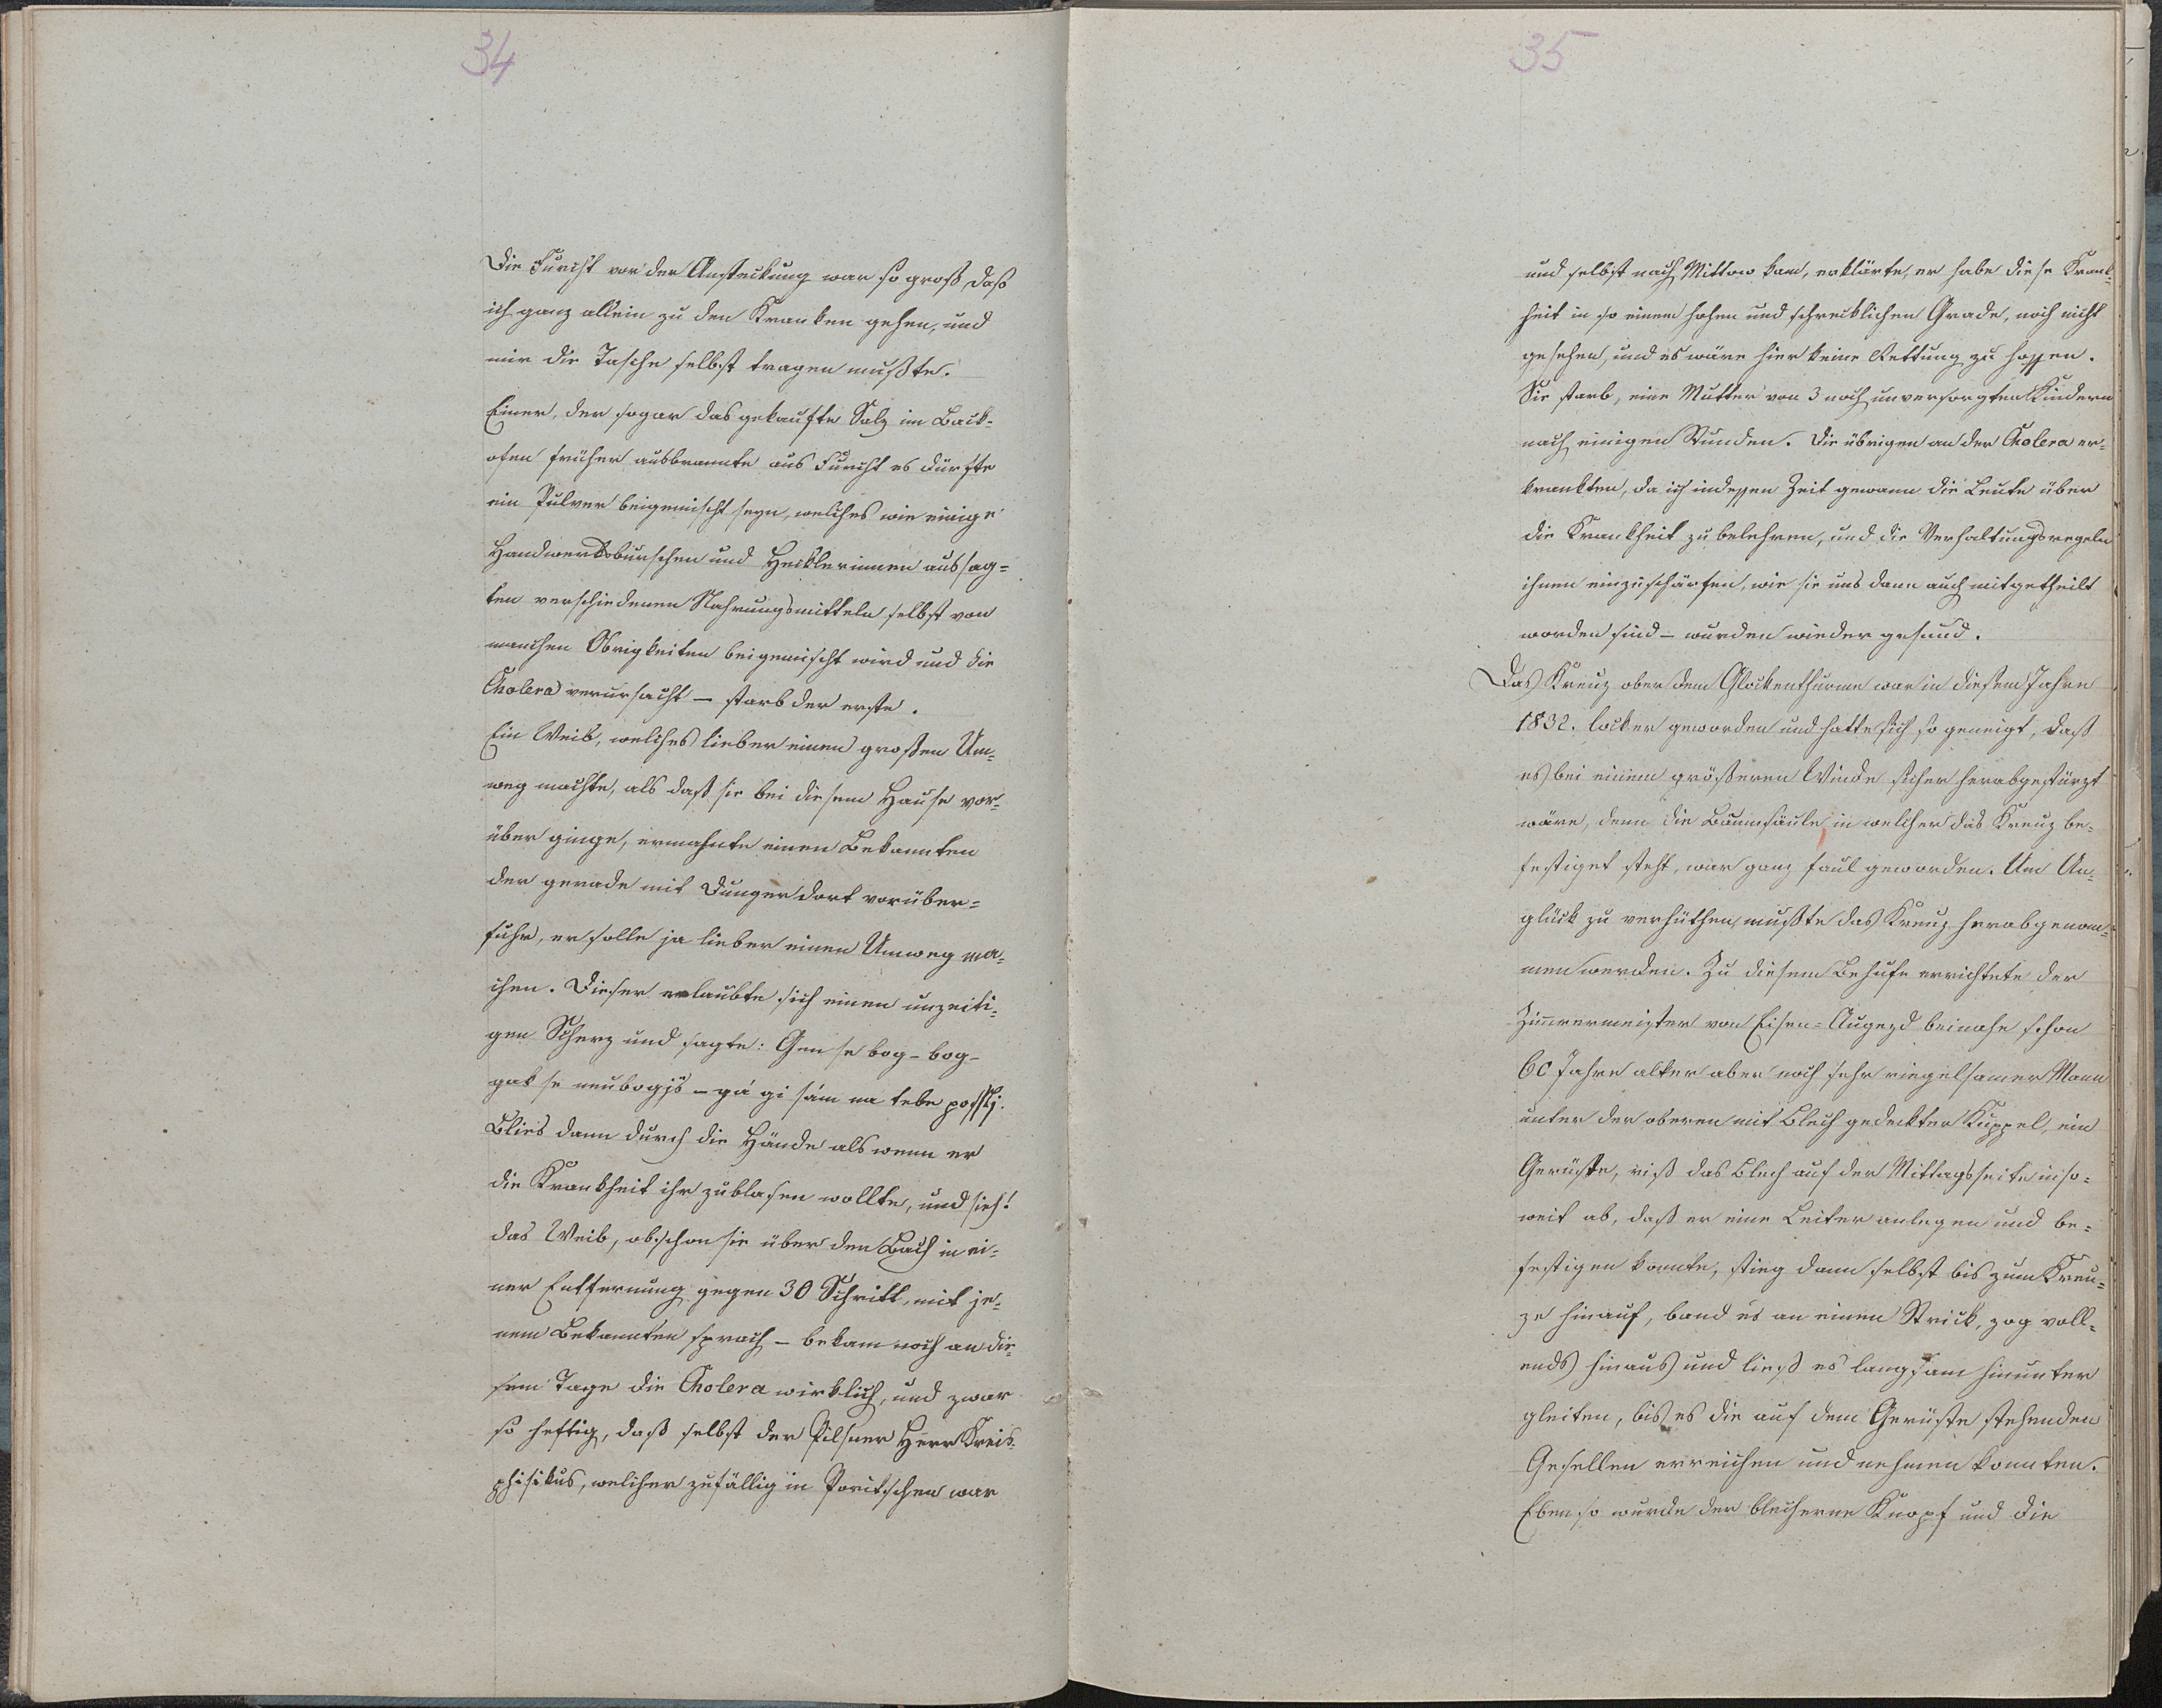 34
Die Furcht vor der Ansteckung war so groß, daß
ich ganz allein zu den Kranken gehen, und
mir die Tasche selbst tragen mußte.
Einer, der sogar das gekaufte Salz im Back-
ofen früher ausbrannte aus Furcht es dürfte
ein Pulver beigemischt seyn, welches wie einige
Handwerksburschen und Hecklerinnen aussag=
ten verschiedenen Nahrungsmitteln selbst von
manchen Obrigkeiten beigemischt wird und die
Cholera verursacht – starb der erste.
Ein Weib, welches lieber einen großen Um-
weg machte, als daß sie bei diesem Hause vor-
über ginge, ermahnte einen Bekannten
der gerade mit Dünger dort vorüber=
fuhr, er solle ja lieber einen Umweg ma-
chen. Dieser erlaubte sich einen unzeiti-
gen Scherz und sagte: Gen se bog – bog –
gak se neubogjš – gá gi sám na tebe possli.
Blies dann durch die Hände als wenn er
die Krankheit ihr zublasen wollte, und sieh!
das Weib, obschon sie über den Bach in ei-
ner Entfernung gegen 30 Schritt, mit je-
nem Bekannten sprach – bekam noch an die-
sem Tage die Cholera wirklich, und zwar
so heftig, daß selbst der Pilsner Herr Kreis-
phisikus, welcher zufällig in Poritschen war
35
und selbst nach Mittow kam, erklärte, er habe diese Krank-
heit in so einem hohen und schrecklichen Grade, noch nicht
gesehen, und es wäre hier keine Rettung zu hoffen.
Sie starb, eine Mutter von 3 noch unversorgten Kindern
nach einigen Stunden. Die übrigen an der Cholera er-
krankten, da ich indessen Zeit gewann die Leute über
die Krankheit zu belehren, und die Verhaltungsregeln
ihnen einzuschärfen, wie sie uns dann auch mitgetheilt
worden sind – wurden wieder gesund.
Das Kreuz ober dem Glockenthurme war in diesem Jahre
1832. locker geworden und hatte sich so geneigt, daß
es bei einem größeren Winde sicher herabgestürzt
wäre, denn die Baumsäule, in welcher das Kreuz be-
festiget steht, war ganz faul geworden. Um Un-
glück zu verhüthen mußte das Kreuz herabgenom-
men werden. Zu diesem Behufe errichtete der
Zimmermeister von Eisen=Augezd beinahe schon
60 Jahre alter aber noch sehr riegelsamer Mann
unter der oberen mit Blech gedeckter Kuppel, ein
Gerüste, riß das Blech auf der Mittagsseite inso-
weit ab, daß er eine Leiter anlegen und be-
festigen konnte, stieg dann selbst bis zum Kreu-
ze hinauf, band es an einen Strick, zog voll-
ends hinaus und ließ es langsam hinunter
gleiten, bis es die auf dem Gerüste stehenden
Gesellen erreichen und nehmen konnten.
Eben so wurde der blecherne Knopf und die